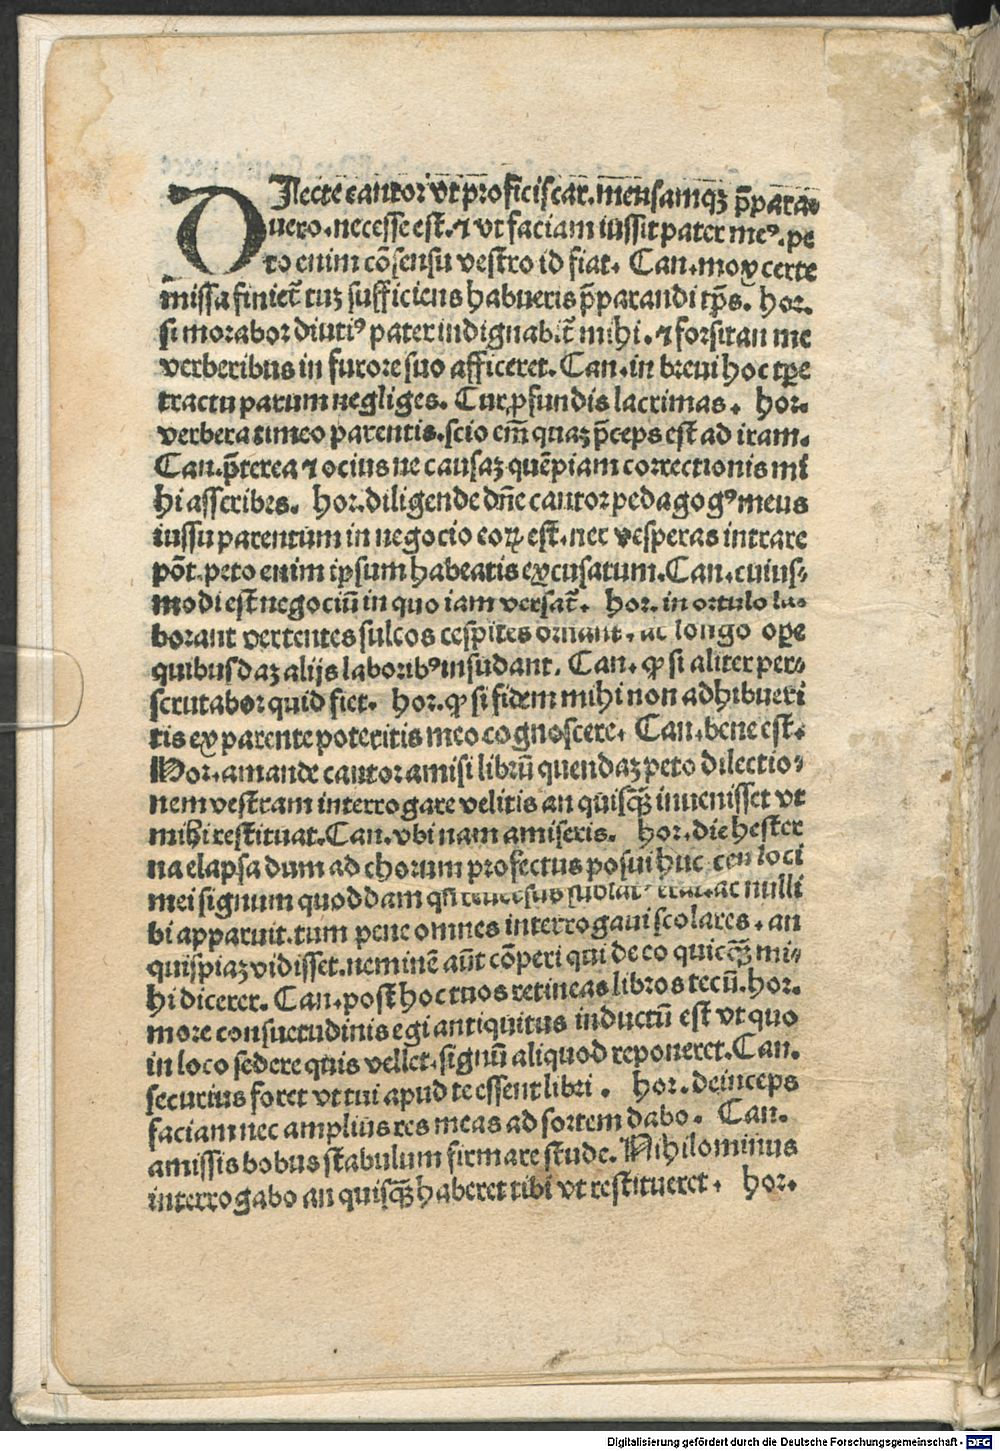 DIlecte cantor vt proficiscar. mensamqꝫ p̄para⸗
uero. necesse est. ⁊ vt faciam iussit pater meꝰ. pe
to enim cōsensu vestro id fiat. Can. mox certe
missa finiet̄ tuꝫ sufficiens habueris p̄parandi tp̄s. hor.
si morabor diutiꝰ pater indignabit̄ mihi. ⁊ forsitan me
verberibus in furore suo afficeret. Can. in breui hoc tꝑe
tractu parum negliges. Cur ꝓfundis lacrimas. hor.
verbera timeo parentis. scio em̄ quaꝫ p̄ceps est ad iram.
Can. p̄terea ⁊ ocius ne causaꝫ quēpiam correctionis mi
hi asscribes. hor. diligende dn̄e cantor pedagogꝰ meus
iussu parentum in negocio eoꝝ est. nec vesperas intrare
pōt. peto enim ipsum habeatis excusatum. Can. cuius⸗
modi est negociū in quo iam versat̄. hor. in ortulo la⸗
borant vertentes sulcos cespites ornant. ac longo oꝑe
quibusdaꝫ alijs laboribꝰ insudant. Can. ꝙ si aliter per⸗
scrutabor quid fiet. hor. ꝙ si fidem mihi non adhibueri
tis ex parente poteritis meo cognoscere. Can. bene est.
Hor. amande cantor amisi librū quendaꝫ peto dilectio⸗
nem vestram interrogare velitis an quisqꝫ inuenisset vt
mihi restituat. Can. vbi nam amiseris. hor. die hester
na elapsa dum ad chorum profectus posui huc ceu loci
mei signum quoddam reuersus ac nulli
bi apparuit. tum pene omnes interrogaui scolares. an
quispiaꝫ vidisset. neminē aūt cōperi qui de eo quicqꝫ mi⸗
hi diceret. Can. post hoc tuos retineas libros tecū. hor.
more consuetudinis egi antiquitus inductū est vt quo
in loco sedere quis vellet. signū aliquod reponeret. Can.
securius foret vt tui apud te essent libri. hor. deinceps
faciam nec amplius res meas ad sortem dabo. Can.
amissis bobus stabulum firmare stude. Nihilominus
interrogabo an quisqꝫ haberet tibi vt restitueret. hor.
Digitalisierung gefördert durch die Deutsche Forschungsgemeinschaft - DFG